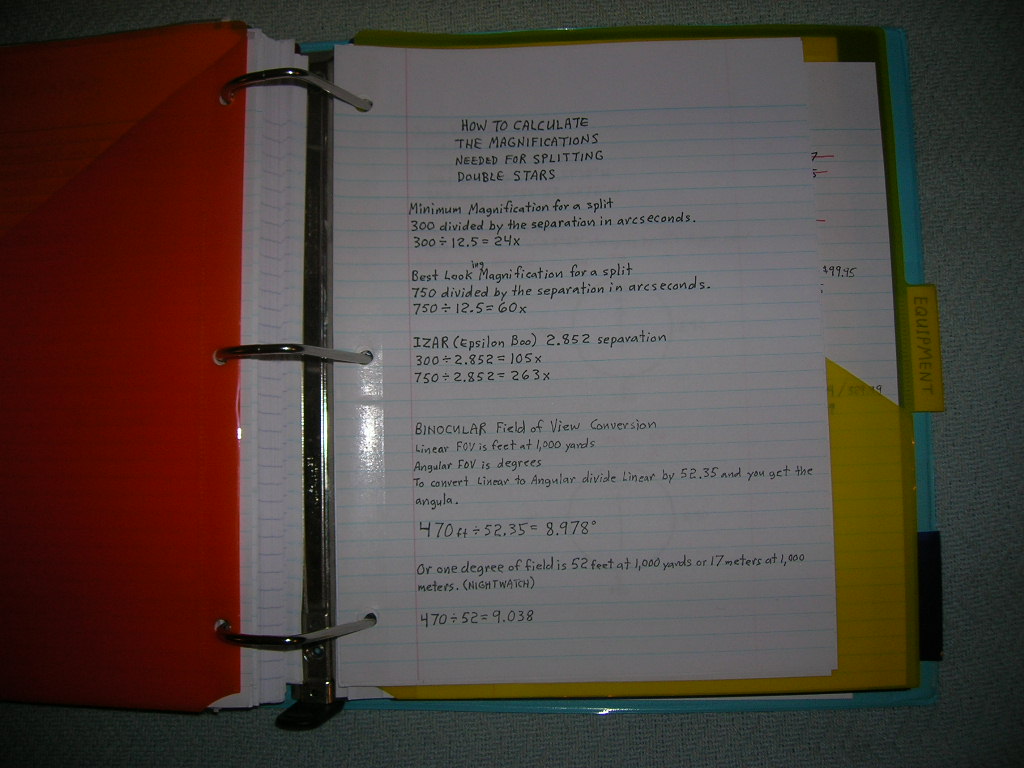 HOW TO CALCULATE
THE MAGNIFICATIONS
NEEDED FOR SPLITTING
DOUBLE STARS
Minimum Magnification for a split
300 divided by the separation in arcseconds.
300 ÷ 12.5 = 24x
Best Looking Magnification for a split
750 divided by the separation in arcseconds.
750 ÷ 12.5 = 60x
IZAR (Epsilon Boo) 2.852 separation
300 ÷ 2.852 = 105x
750 ÷ 2.852 = 263x
BINOCULAR Field of View Conversion
Linear FOV is feet at 1,000 yards
Angular FOV is degrees
To convert Linear to Angular divide Linear by 52.35 and you get the
angula.
470 ft ÷ 52.35 = 8.978°
Or one degree of field is 52 feet at 1,000 yards or 17 meters at 1,000
meters. (NIGHTWATCH)
470 ÷ 52 = 9.038
$99.95
EQUIPMENT